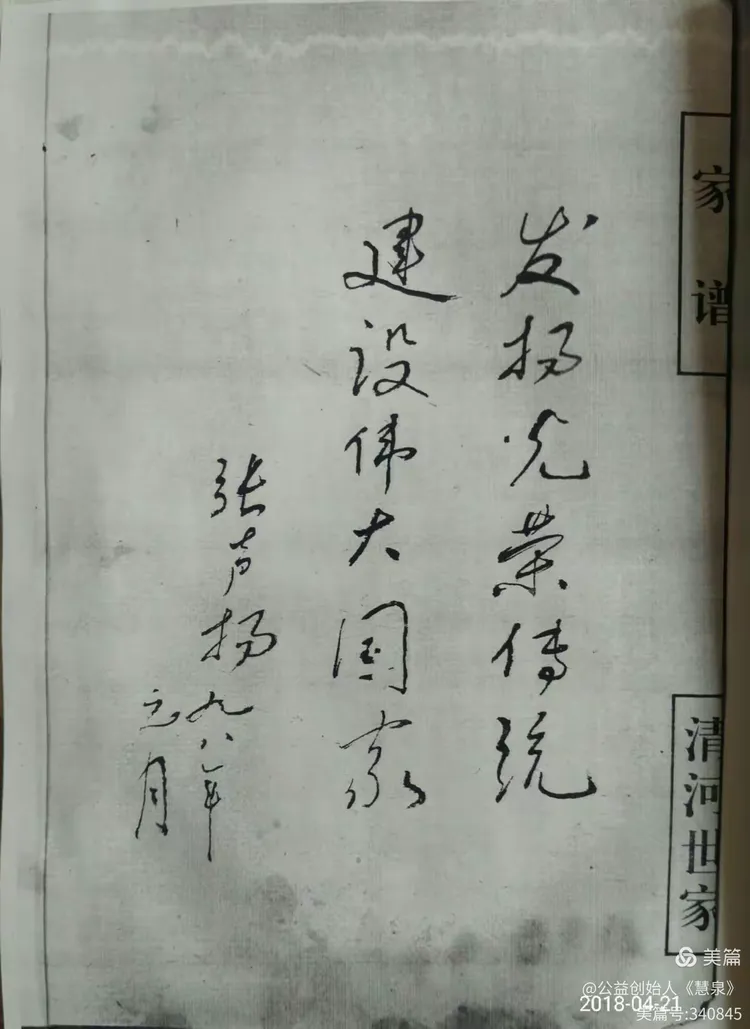 家谱
清河世家
发扬光荣传统
建设伟大国家
张声扬
九八年
元月
美篇
@公益创始人《慧泉》
2018-04-21
美篇号:340845